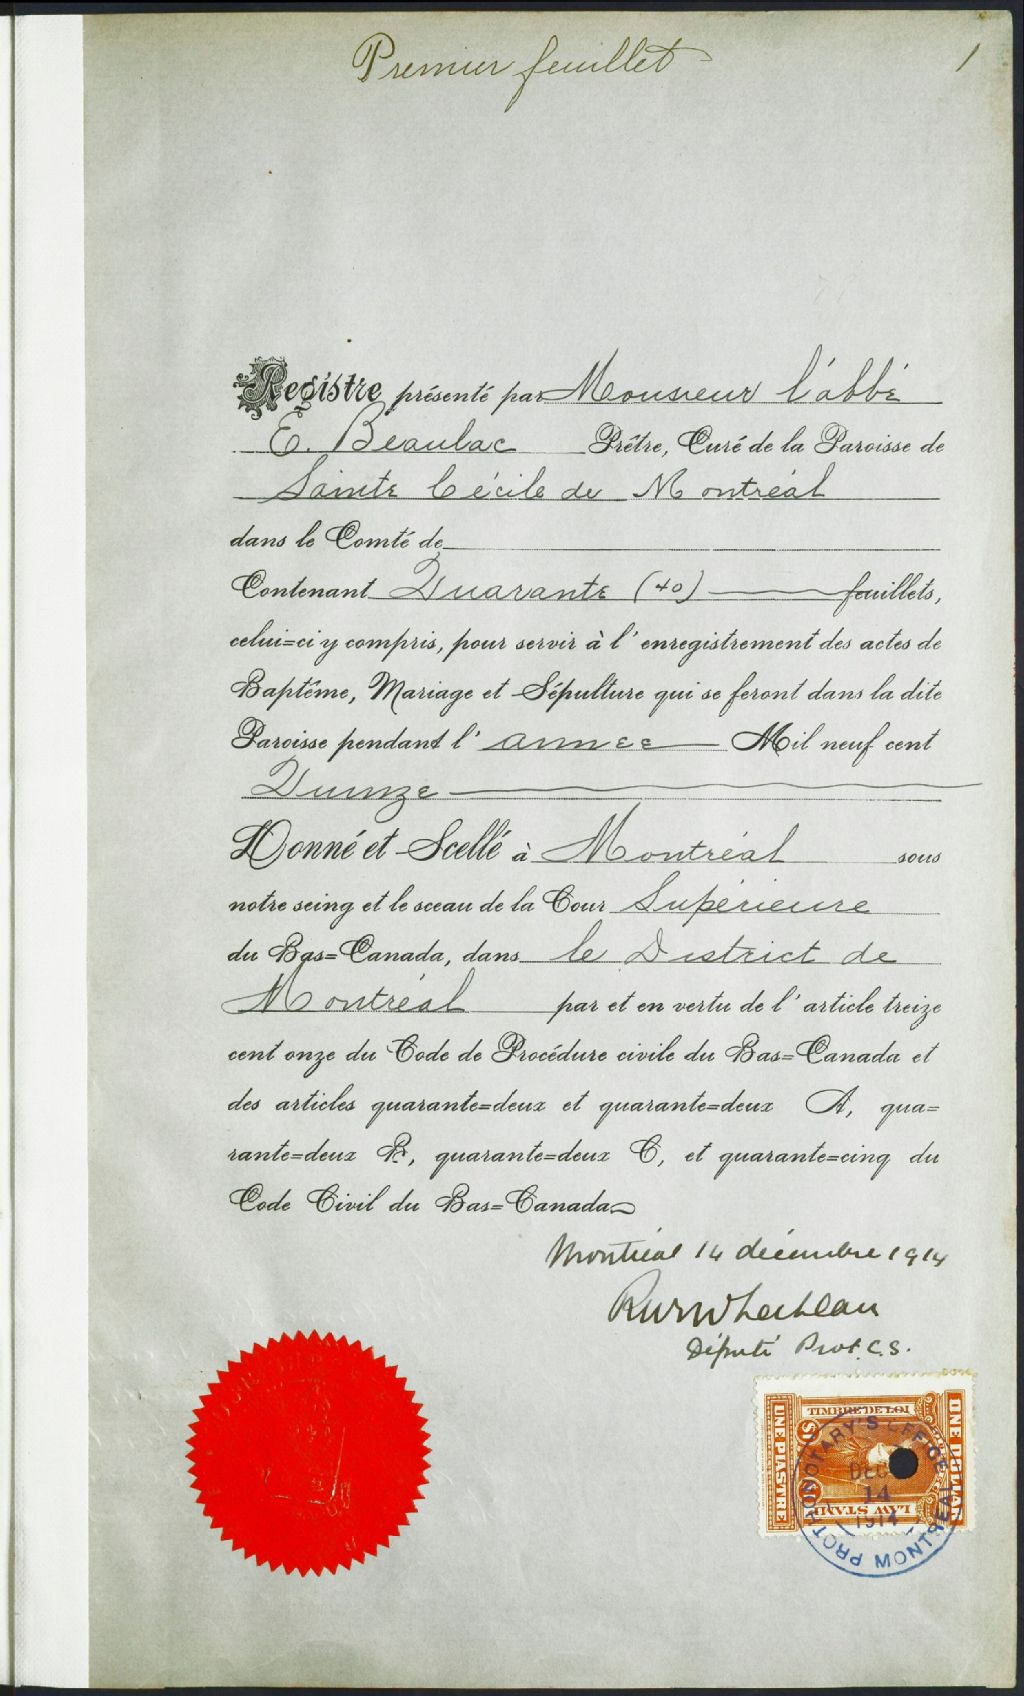 Premier feuillet 1
Registre présenté par Monsieur l'abbé
E. Beaulac Prêtre, Curé de la Paroisse de
Sainte Cécile de Montréal
dans le Comté de
Contenant Quarante (40) feuillets,
celui=ci y compris, pour servir à l'enregistrement des actes de
Baptême, Mariage et Sépulture qui se feront dans la dite
Paroisse pendant l'année Mil neuf cent
Quinze
Donné et Scellé à Montréal sous
notre seing et le sceau de la Cour Supérieure
du Bas=Canada, dans le District de
Montréal par et en vertu de l'article treize
cent onze du Code de Procédure civile du Bas=Canada et
des articles quarante=deux et quarante=deux A, qua=
rante=deux B, quarante=deux C, et quarante=cinq du
Code Civil du Bas=Canada
Montréal 14 décembre 1914
Député Prot. C.S.
TIMBRE DE LOI
ONE DOLLAR
UNE PIASTRE
$1
LAW STAMP
PROTHONOTARY'S OFFICE
DEC
14
1914
MONTREAL